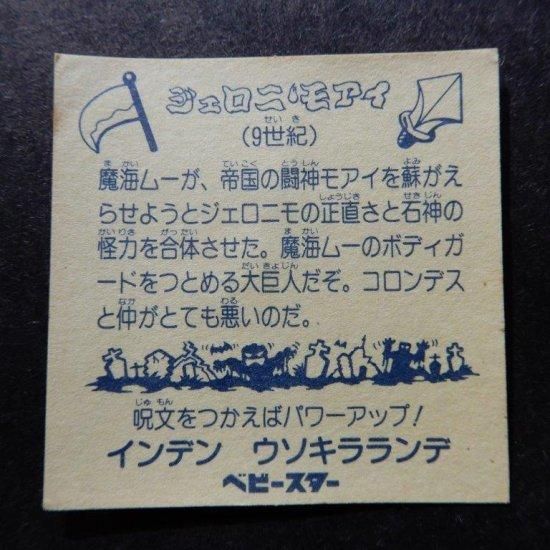 ジェロニ・モアイ
(9世紀)
魔海ムーが、帝国の闘神モアイを蘇がえ
らせようとジェロニモの正直さと石神の
怪力を合体させた。魔海ムーのボディガ
ードをつとめる大巨人だぞ。コロンデス
と仲がとても悪いのだ。
呪文をつかえばパワーアップ!
インデン ウソキラランデ
ベビースター